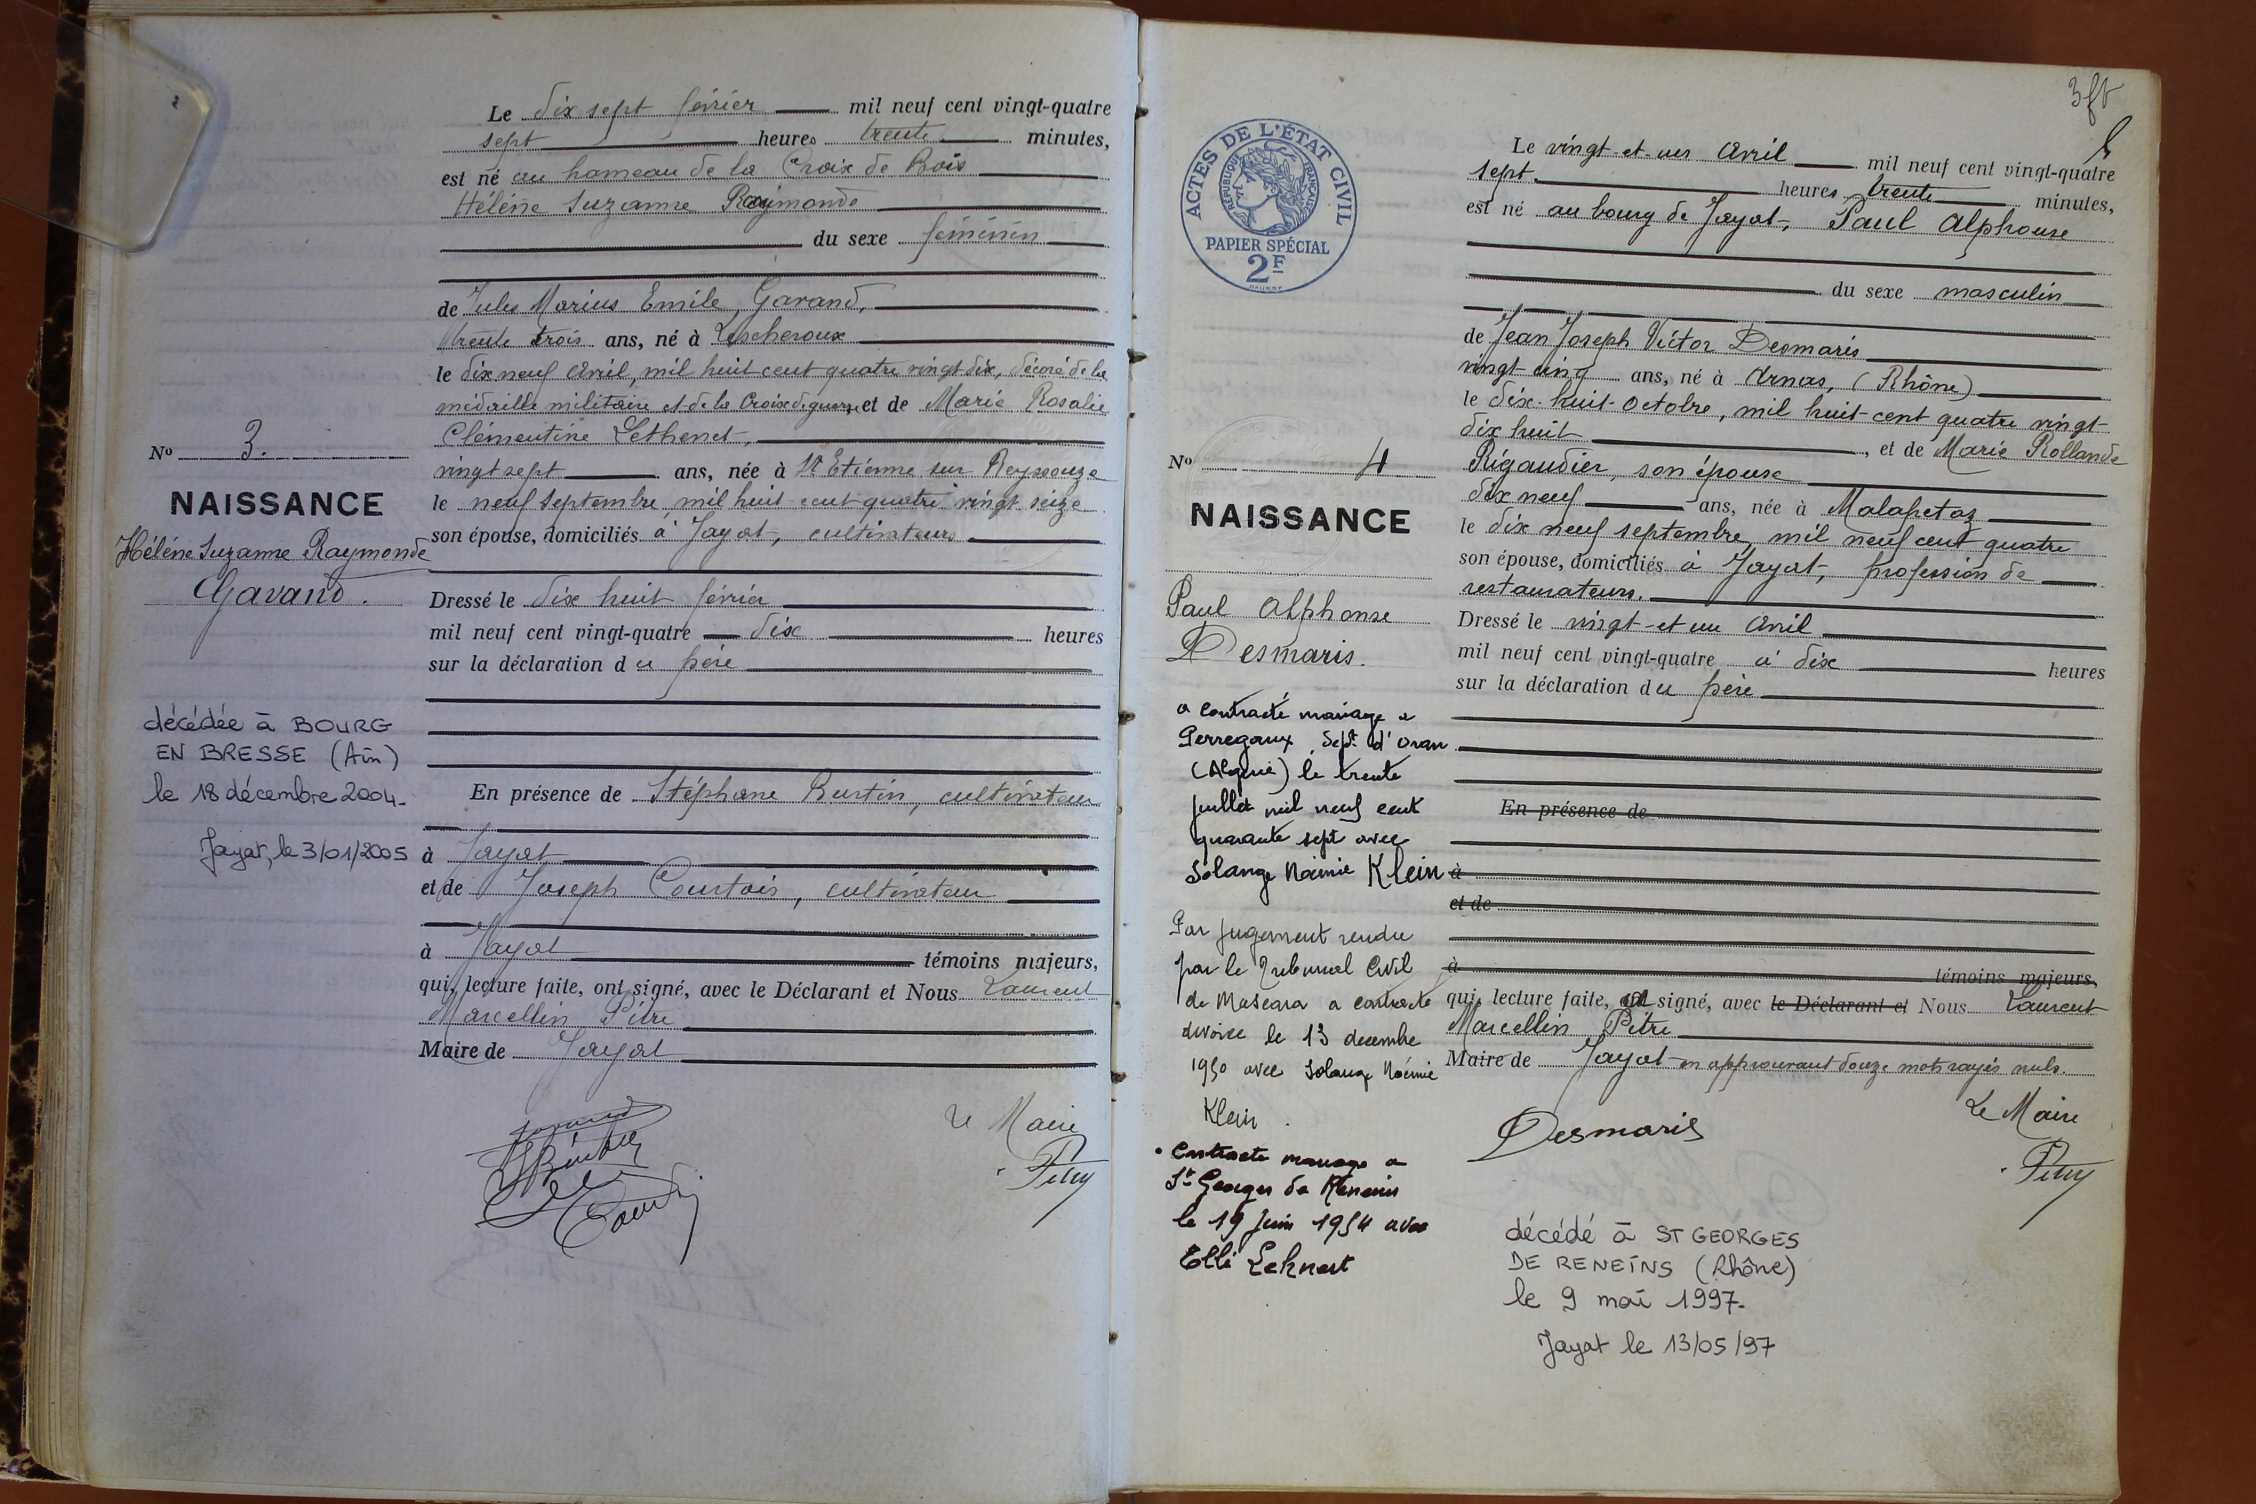 Le dix sept février mil neuf cent vingt-quatre
sept heures trente minutes,
est né au hameau de la Croix de Bois
Hélène Suzanne Raymonde
du sexe féminin
de Jules Marius Emile Gavand,
trente trois ans, né à Lescheroux
le dix neuf Avril, mil huit cent quatre vingt dix, décoré de la
médaille militaire et de la Croix de guerre et de Marie Rosalie
Clémentine Lethenet,
vingt sept ans, née à St Etienne sur Reyssouze
le neuf septembre, mil huit cent quatre vingt seize
son épouse, domiciliés à Jayat, cultivateurs
Dressé le dix huit février
mil neuf cent vingt-quatre dix heures
sur la déclaration du père
En présence de Stéphane Burtin, cultivateur
à Jayat
et de Joseph Courtois, cultivateur
à Jayat témoins majeurs,
qui, lecture faite, ont signé, avec le Déclarant et Nous Laurent
Marcellin Pitre
Maire de Jayat
Le Maire
Pitre
No 3.
NAISSANCE
Hélène Suzanne Raymonde
Gavand.
décédée à BOURG
EN BRESSE (Ain)
le 18 décembre 2004-
Jayat, le 3/01/2005
3 fb
ACTES DE L'ÉTAT CIVIL
RÉPUBLIQUE FRANÇAISE
PAPIER SPÉCIAL
2F
Le vingt-et-un Avril mil neuf cent vingt-quatre
sept heures trente minutes,
est né au bourg de Jayat, Paul Alphonse
du sexe masculin
de Jean Joseph Victor Desmaris
vingt cinq ans, né à Arnas, (Rhône)
le dix-huit-Octobre, mil huit-cent quatre vingt-
dix huit, et de Marie Rollande
Rigaudier, son épouse
dix neuf ans, née à Malafretaz
le dix neuf septembre, mil neuf cent quatre
son épouse, domiciliés à Jayat, profession de
restaurateurs.
Dressé le vingt-et-un Avril
mil neuf cent vingt-quatre à dix heures
sur la déclaration du père
En présence de
à
et de
à témoins majeurs,
qui, lecture faite, a signé, avec le Déclarant et Nous Laurent
Marcellin Pitre
Maire de Jayat en approuvant douze mots rayés nuls.
Le Maire
Desmaris
Pitre
décédé à ST GEORGES
DE RENEINS (Rhône)
le 9 mai 1997-
Jayat le 13/05/97
No 4
NAISSANCE
Paul Alphonse
Desmaris.
a contracté mariage à
Perregaux, Dépt d'Oran
(Algérie) le trente
juillet mil neuf cent
quarante sept avec
Solange Noémie Klein
Par jugement rendu
par le Tribunal Civil
de Mascara a contracté
divorce le 13 decembre
1950 avec Solange Noémie
Klein
Contracte mariage a
St Georges de Reneins
le 19 Juin 1954 avec
Elli Lehnert